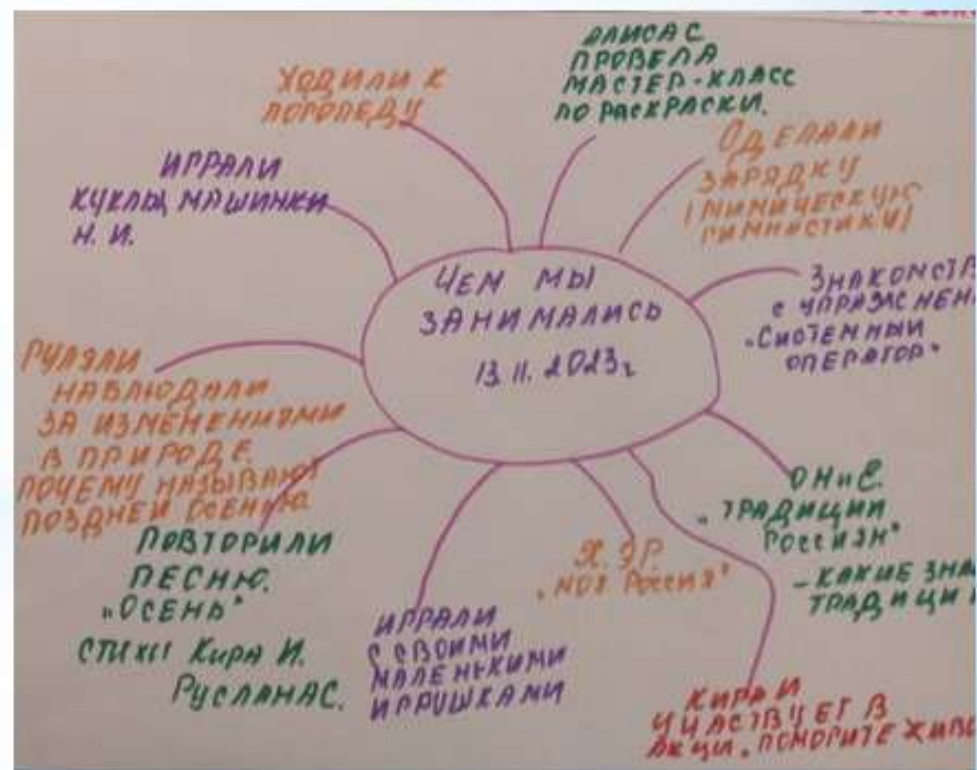 ЧЕМ МЫ
ЗАНИМАЛИСЬ
13.11.2023г
ХОДИЛИ К
ЛОГОПЕДУ
АЛИСА С.
ПРОВЕЛА
МАСТЕР-КЛАСС
ПО РАСКРАСКИ.
СДЕЛАЛИ
ЗАРЯДКУ
(МИМИЧЕСКУЮ
ГИМНАСТИКУ)
С УПРАЖНЕН
"СИСТЕМНЫЙ
ОПЕРАТОР"
ОНиС.
"ТРАДИЦИИ
РОССИЯН"
- КАКИЕ ЗНА
ТРАДИЦИ
КИРА И
УЧАСТВУЕТ В
АКЦИ. "ПОМОГИТЕ ЖИВ
Х. ЭР.
"МОЯ РОССИЯ"
ИГРАЛИ
С СВОИМИ
МАЛЕНЬКИМИ
ИГРУШКАМИ
ПОВТОРИЛИ
ПЕСНЮ.
"ОСЕНЬ"
СТИХИ КИРА И.
РУСЛАНА С.
ГУЛЯЛИ
НАБЛЮДАЛИ
ЗА ИЗМЕНЕНИЯМИ
В ПРИРОДЕ.
ПОЧЕМУ НАЗЫВАЮТ
ПОЗДНЕЙ ОСЕНЬЮ.
ИГРАЛИ
КУКЛЫ, МАШИНКИ
Н. И.